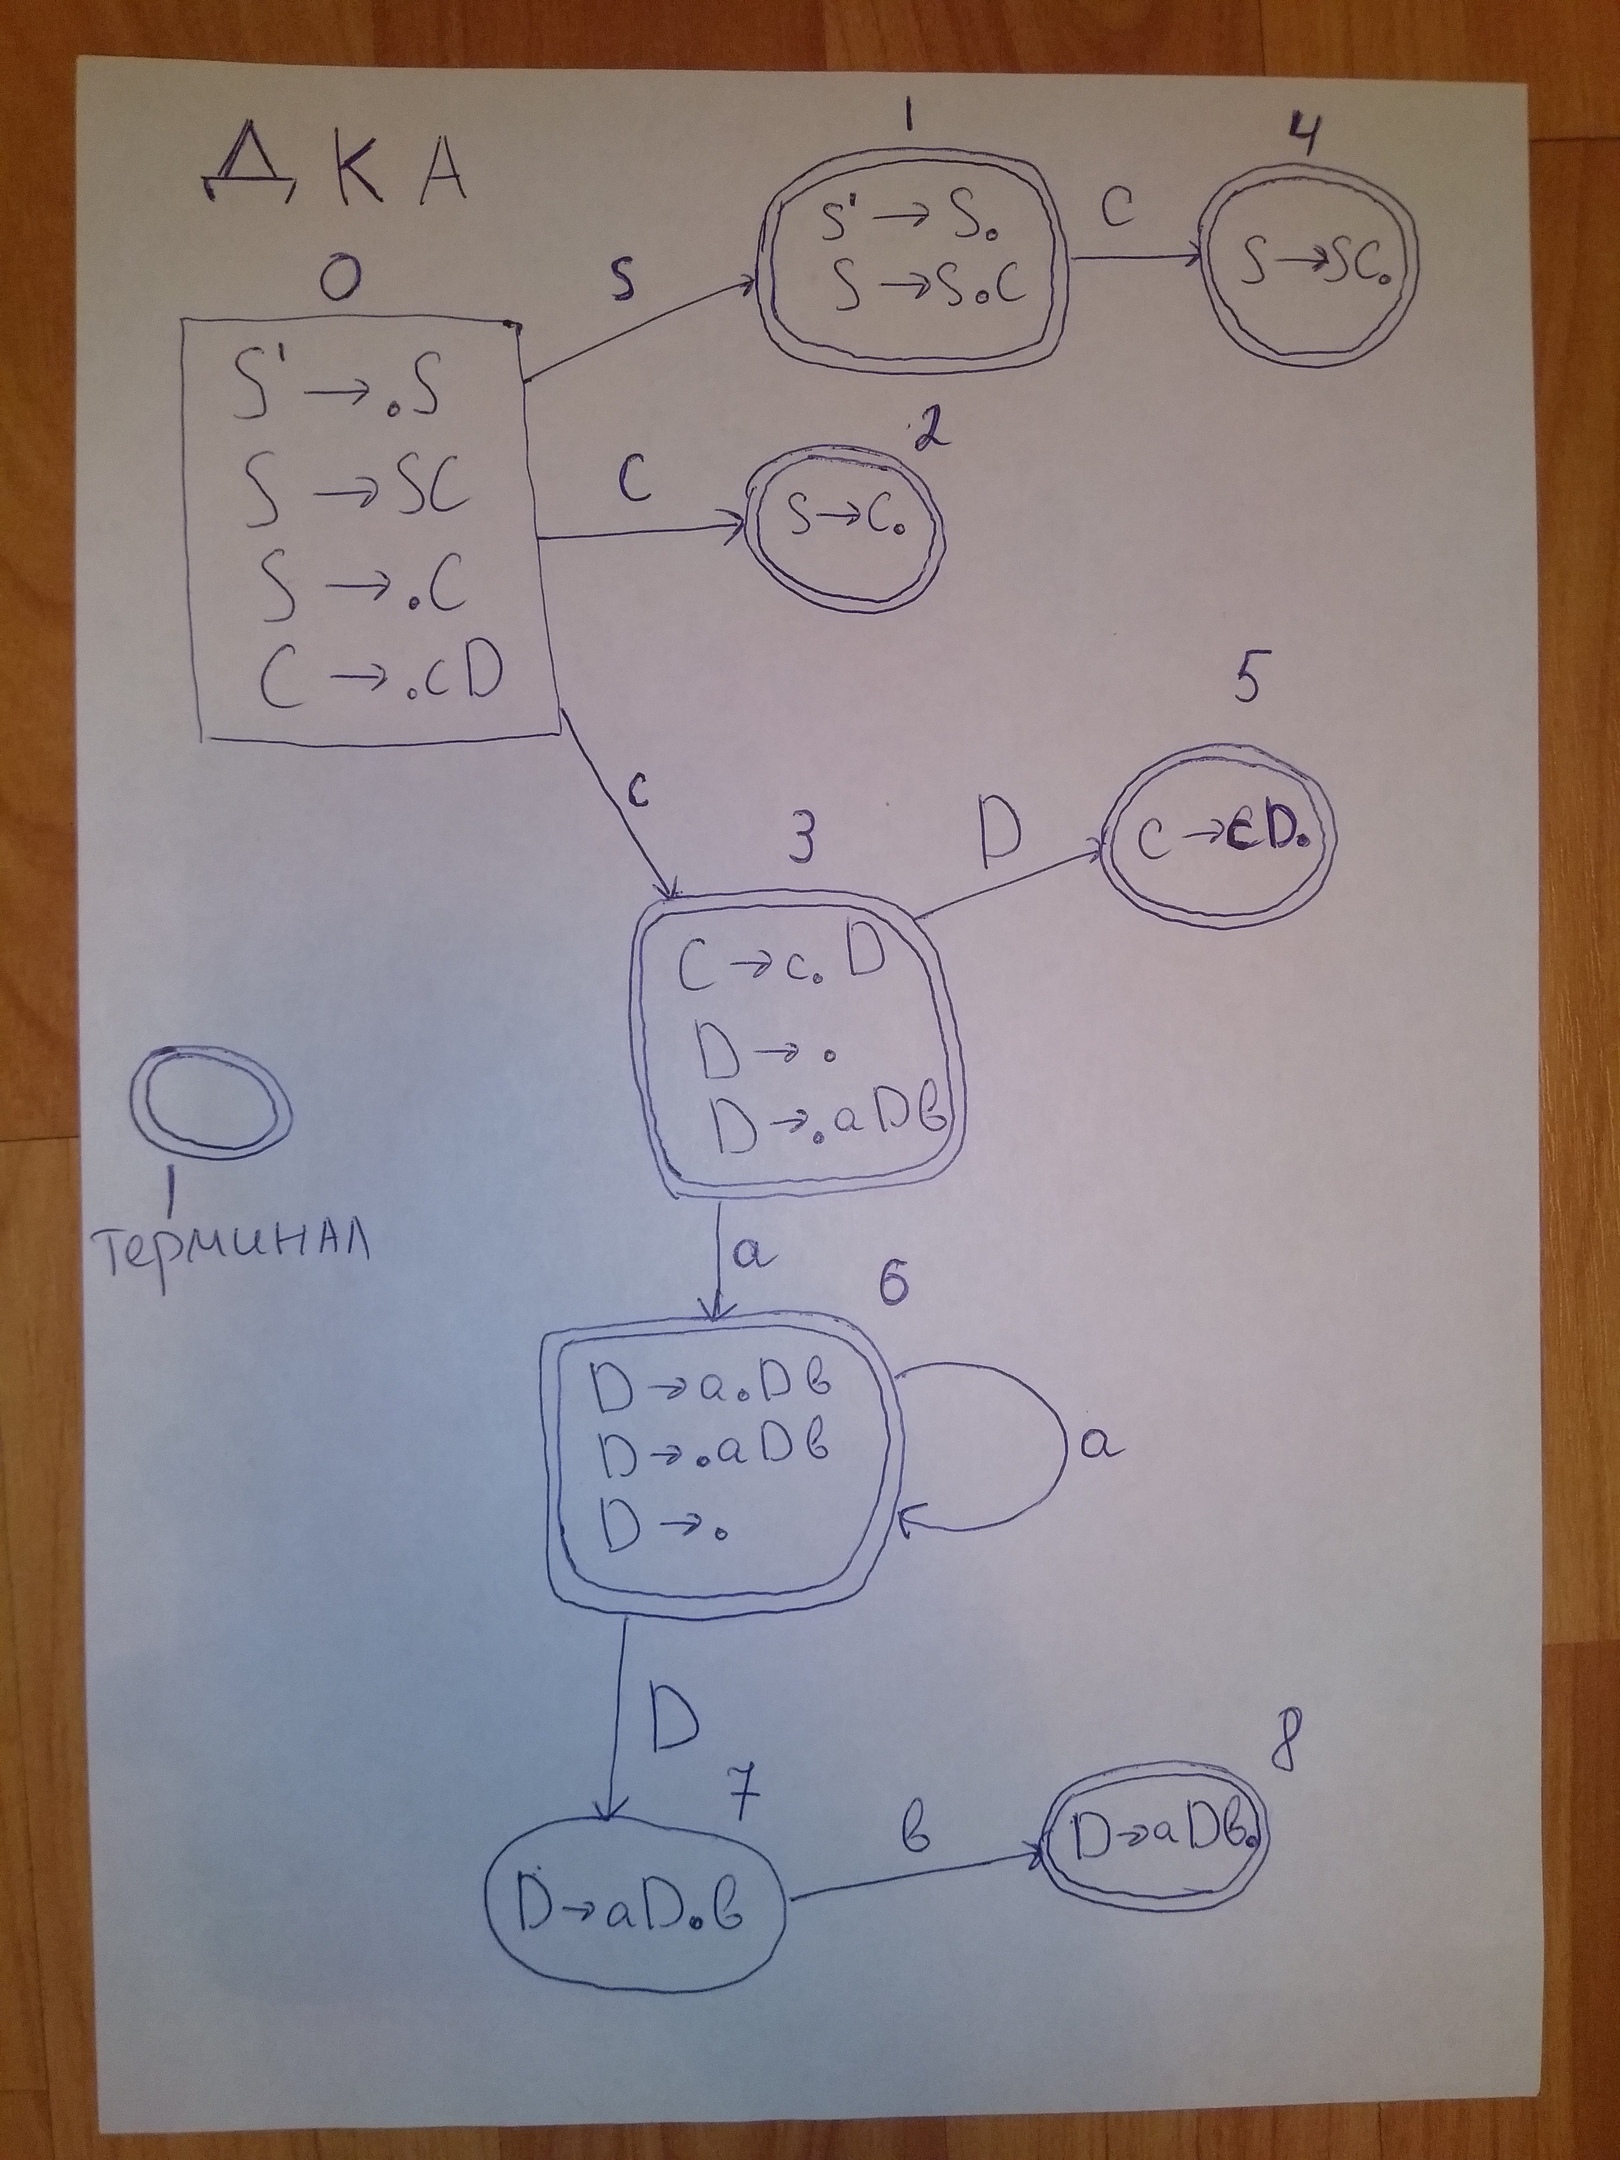 ДКА
0
S' → .S
S → SC
S → .C
C → .cD
S
1
S' → S.
S → S.C
C
4
S → SC.
C
2
S → C.
c
3
C → c.D
D → .
D → .aDв
D
5
C → cD.
терминал
a
6
D → a.Dв
D → .aDв
D → .
a
D
7
D → aD.в
в
8
D → aDв.